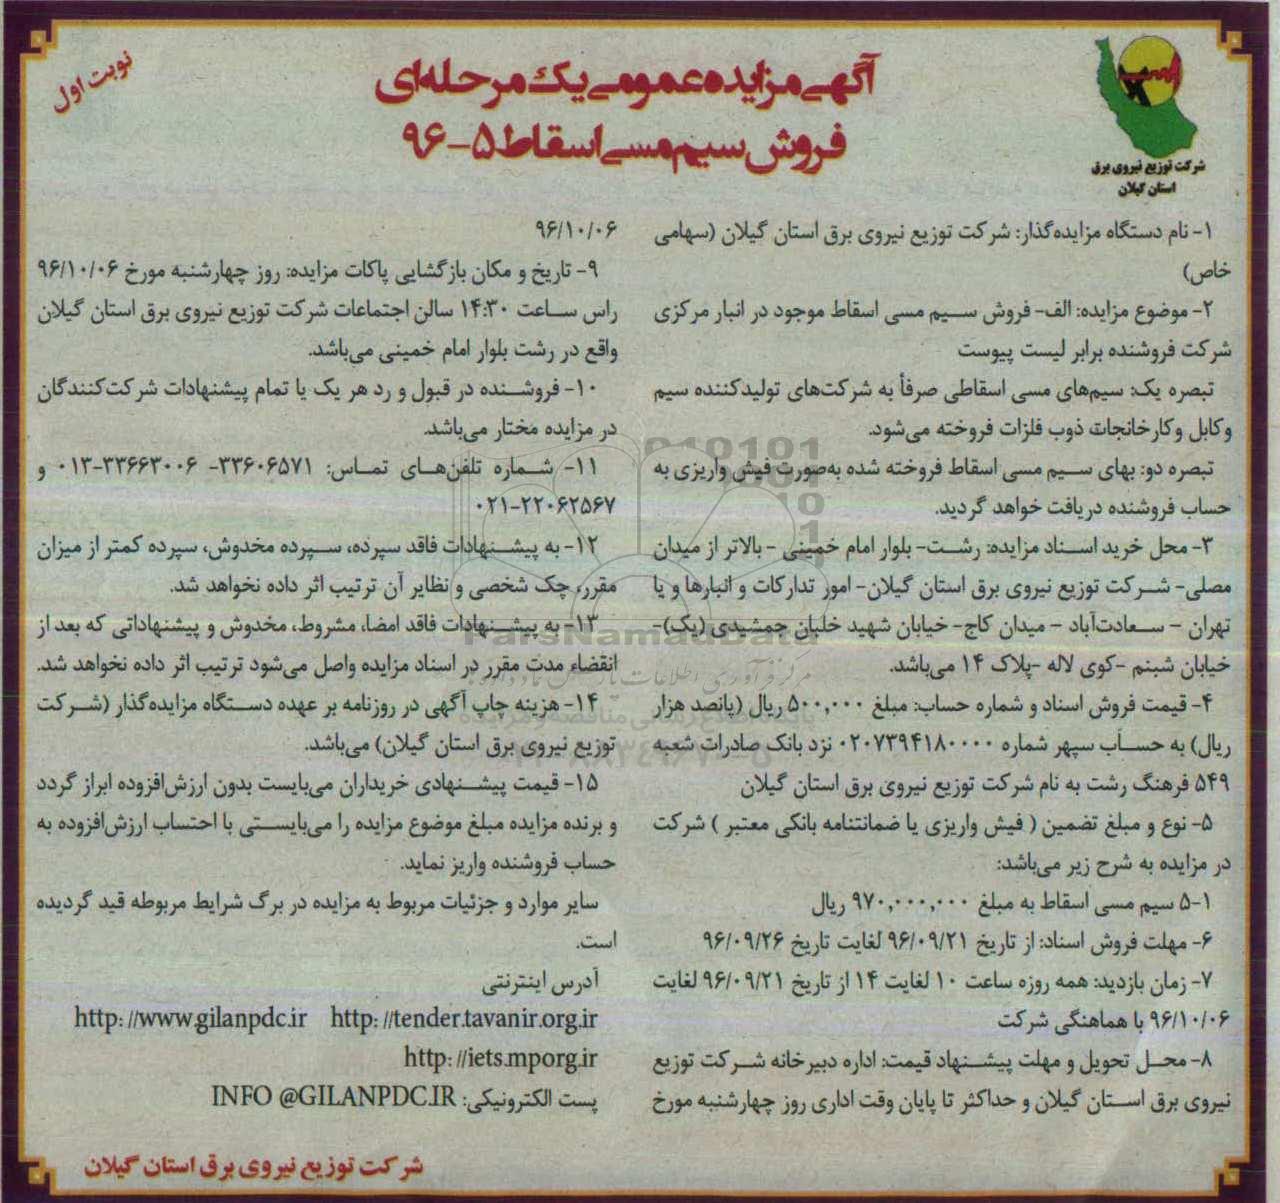 نوبت اول
آگهی مزایده عمومی یک مرحله‌ای
فروش سیم مسی اسقاط ۵-۹۶
شرکت توزیع نیروی برق
استان گیلان
۱- نام دستگاه مزایده‌گذار: شرکت توزیع نیروی برق استان گیلان (سهامی
خاص)
۲- موضوع مزایده: الف- فروش سیم مسی اسقاط موجود در انبار مرکزی
شرکت فروشنده برابر لیست پیوست
تبصره یک: سیم‌های مسی اسقاطی صرفاً به شرکت‌های تولیدکننده سیم
وکابل وکارخانجات ذوب فلزات فروخته می‌شود.
تبصره دو: بهای سیم مسی اسقاط فروخته شده به‌صورت فیش واریزی به
حساب فروشنده دریافت خواهد گردید.
۳- محل خرید اسناد مزایده: رشت- بلوار امام خمینی - بالاتر از میدان
مصلی- شرکت توزیع نیروی برق استان گیلان- امور تدارکات و انبارها و یا
تهران - سعادت‌آباد - میدان کاج- خیابان شهید خلیان جمشیدی (یک)-
خیابان شبنم -کوی لاله -پلاک ۱۴ می‌باشد.
۴- قیمت فروش اسناد و شماره حساب: مبلغ ۵۰۰,۰۰۰ ریال (پانصد هزار
ریال) به حساب سپهر شماره ۰۲۰۷۳۹۴۱۸۰۰۰۰ نزد بانک صادرات شعبه
۵۴۹ فرهنگ رشت به نام شرکت توزیع نیروی برق استان گیلان
۵- نوع و مبلغ تضمین ( فیش واریزی یا ضمانتنامه بانکی معتبر ) شرکت
در مزایده به شرح زیر می‌باشد:
۵-۱ سیم مسی اسقاط به مبلغ ۹۷۰,۰۰۰,۰۰۰ ریال
۶- مهلت فروش اسناد: از تاریخ ۹۶/۰۹/۲۱ لغایت تاریخ ۹۶/۰۹/۲۶
۷- زمان بازدید: همه روزه ساعت ۱۰ لغایت ۱۴ از تاریخ ۹۶/۰۹/۲۱ لغایت
۹۶/۱۰/۰۶ با هماهنگی شرکت
۸- محل تحویل و مهلت پیشنهاد قیمت: اداره دبیرخانه شرکت توزیع
نیروی برق استان گیلان و حداکثر تا پایان وقت اداری روز چهارشنبه مورخ
۹۶/۱۰/۰۶
۹- تاریخ و مکان بازگشایی پاکات مزایده: روز چهارشنبه مورخ ۹۶/۱۰/۰۶
راس ساعت ۱۴:۳۰ سالن اجتماعات شرکت توزیع نیروی برق استان گیلان
واقع در رشت بلوار امام خمینی می‌باشد.
۱۰- فروشنده در قبول و رد هر یک یا تمام پیشنهادات شرکت‌کنندگان
در مزایده مختار می‌باشد.
۱۱- شماره تلفن‌های تماس: ۳۳۶۰۶۵۷۱- ۳۳۶۶۳۰۰۶-۰۱۳ و
۰۲۱-۲۲۰۶۲۵۶۷
۱۲- به پیشنهادات فاقد سپرده، سپرده مخدوش، سپرده کمتر از میزان
مقرر، چک شخصی و نظایر آن ترتیب اثر داده نخواهد شد.
۱۳- به پیشنهادات فاقد امضا، مشروط، مخدوش و پیشنهاداتی که بعد از
انقضاء مدت مقرر در اسناد مزایده واصل می‌شود ترتیب اثر داده نخواهد شد.
۱۴- هزینه چاپ آگهی در روزنامه بر عهده دستگاه مزایده‌گذار (شرکت
توزیع نیروی برق استان گیلان) می‌باشد.
۱۵- قیمت پیشنهادی خریداران می‌بایست بدون ارزش‌افزوده ابراز گردد
و برنده مزایده مبلغ موضوع مزایده را می‌بایستی با احتساب ارزش‌افزوده به
حساب فروشنده واریز نماید.
سایر موارد و جزئیات مربوط به مزایده در برگ شرایط مربوطه قید گردیده
است.
آدرس اینترنتی
http://www.gilanpdc.ir http://tender.tavanir.org.ir
http://iets.mporg.ir
پست الکترونیکی: INFO @GILANPDC.IR
شرکت توزیع نیروی برق استان گیلان
ParsNamadData